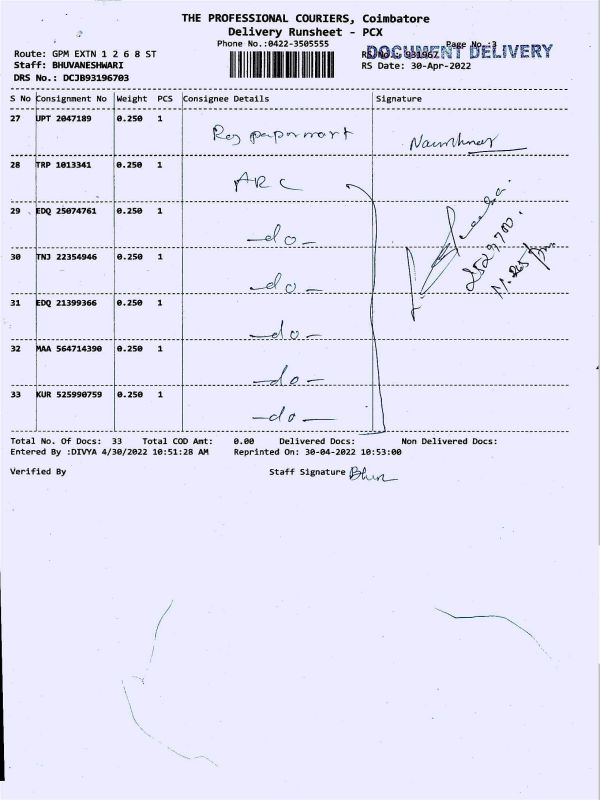 THE PROFESSIONAL COURIERS, Coimbatore
Delivery Runsheet - PCX
Phone No.:0422-3505555
Page No.:3
DOCUMENT DELIVERY
Route: GPM EXTN 1 2 6 8 ST
RS No.: 931967
Staff: BHUVANESHWARI
RS Date: 30-Apr-2022
DRS No.: DCJB93196703
S No Consignment No Weight PCS Consignee Details Signature
27 UPT 2047189 0.250 1
28 TRP 1013341 0.250 1 ARC
29 EDQ 25074761 0.250 1 -do-
30 TNJ 22354946 0.250 1 -do-
31 EDQ 21399366 0.250 1 -do-
32 MAA 564714390 0.250 1 -do-
33 KUR 525990759 0.250 1 -do-
Total No. Of Docs: 33 Total COD Amt: 0.00 Delivered Docs: Non Delivered Docs:
Entered By :DIVYA 4/30/2022 10:51:28 AM Reprinted On: 30-04-2022 10:53:00
Verified By Staff Signature